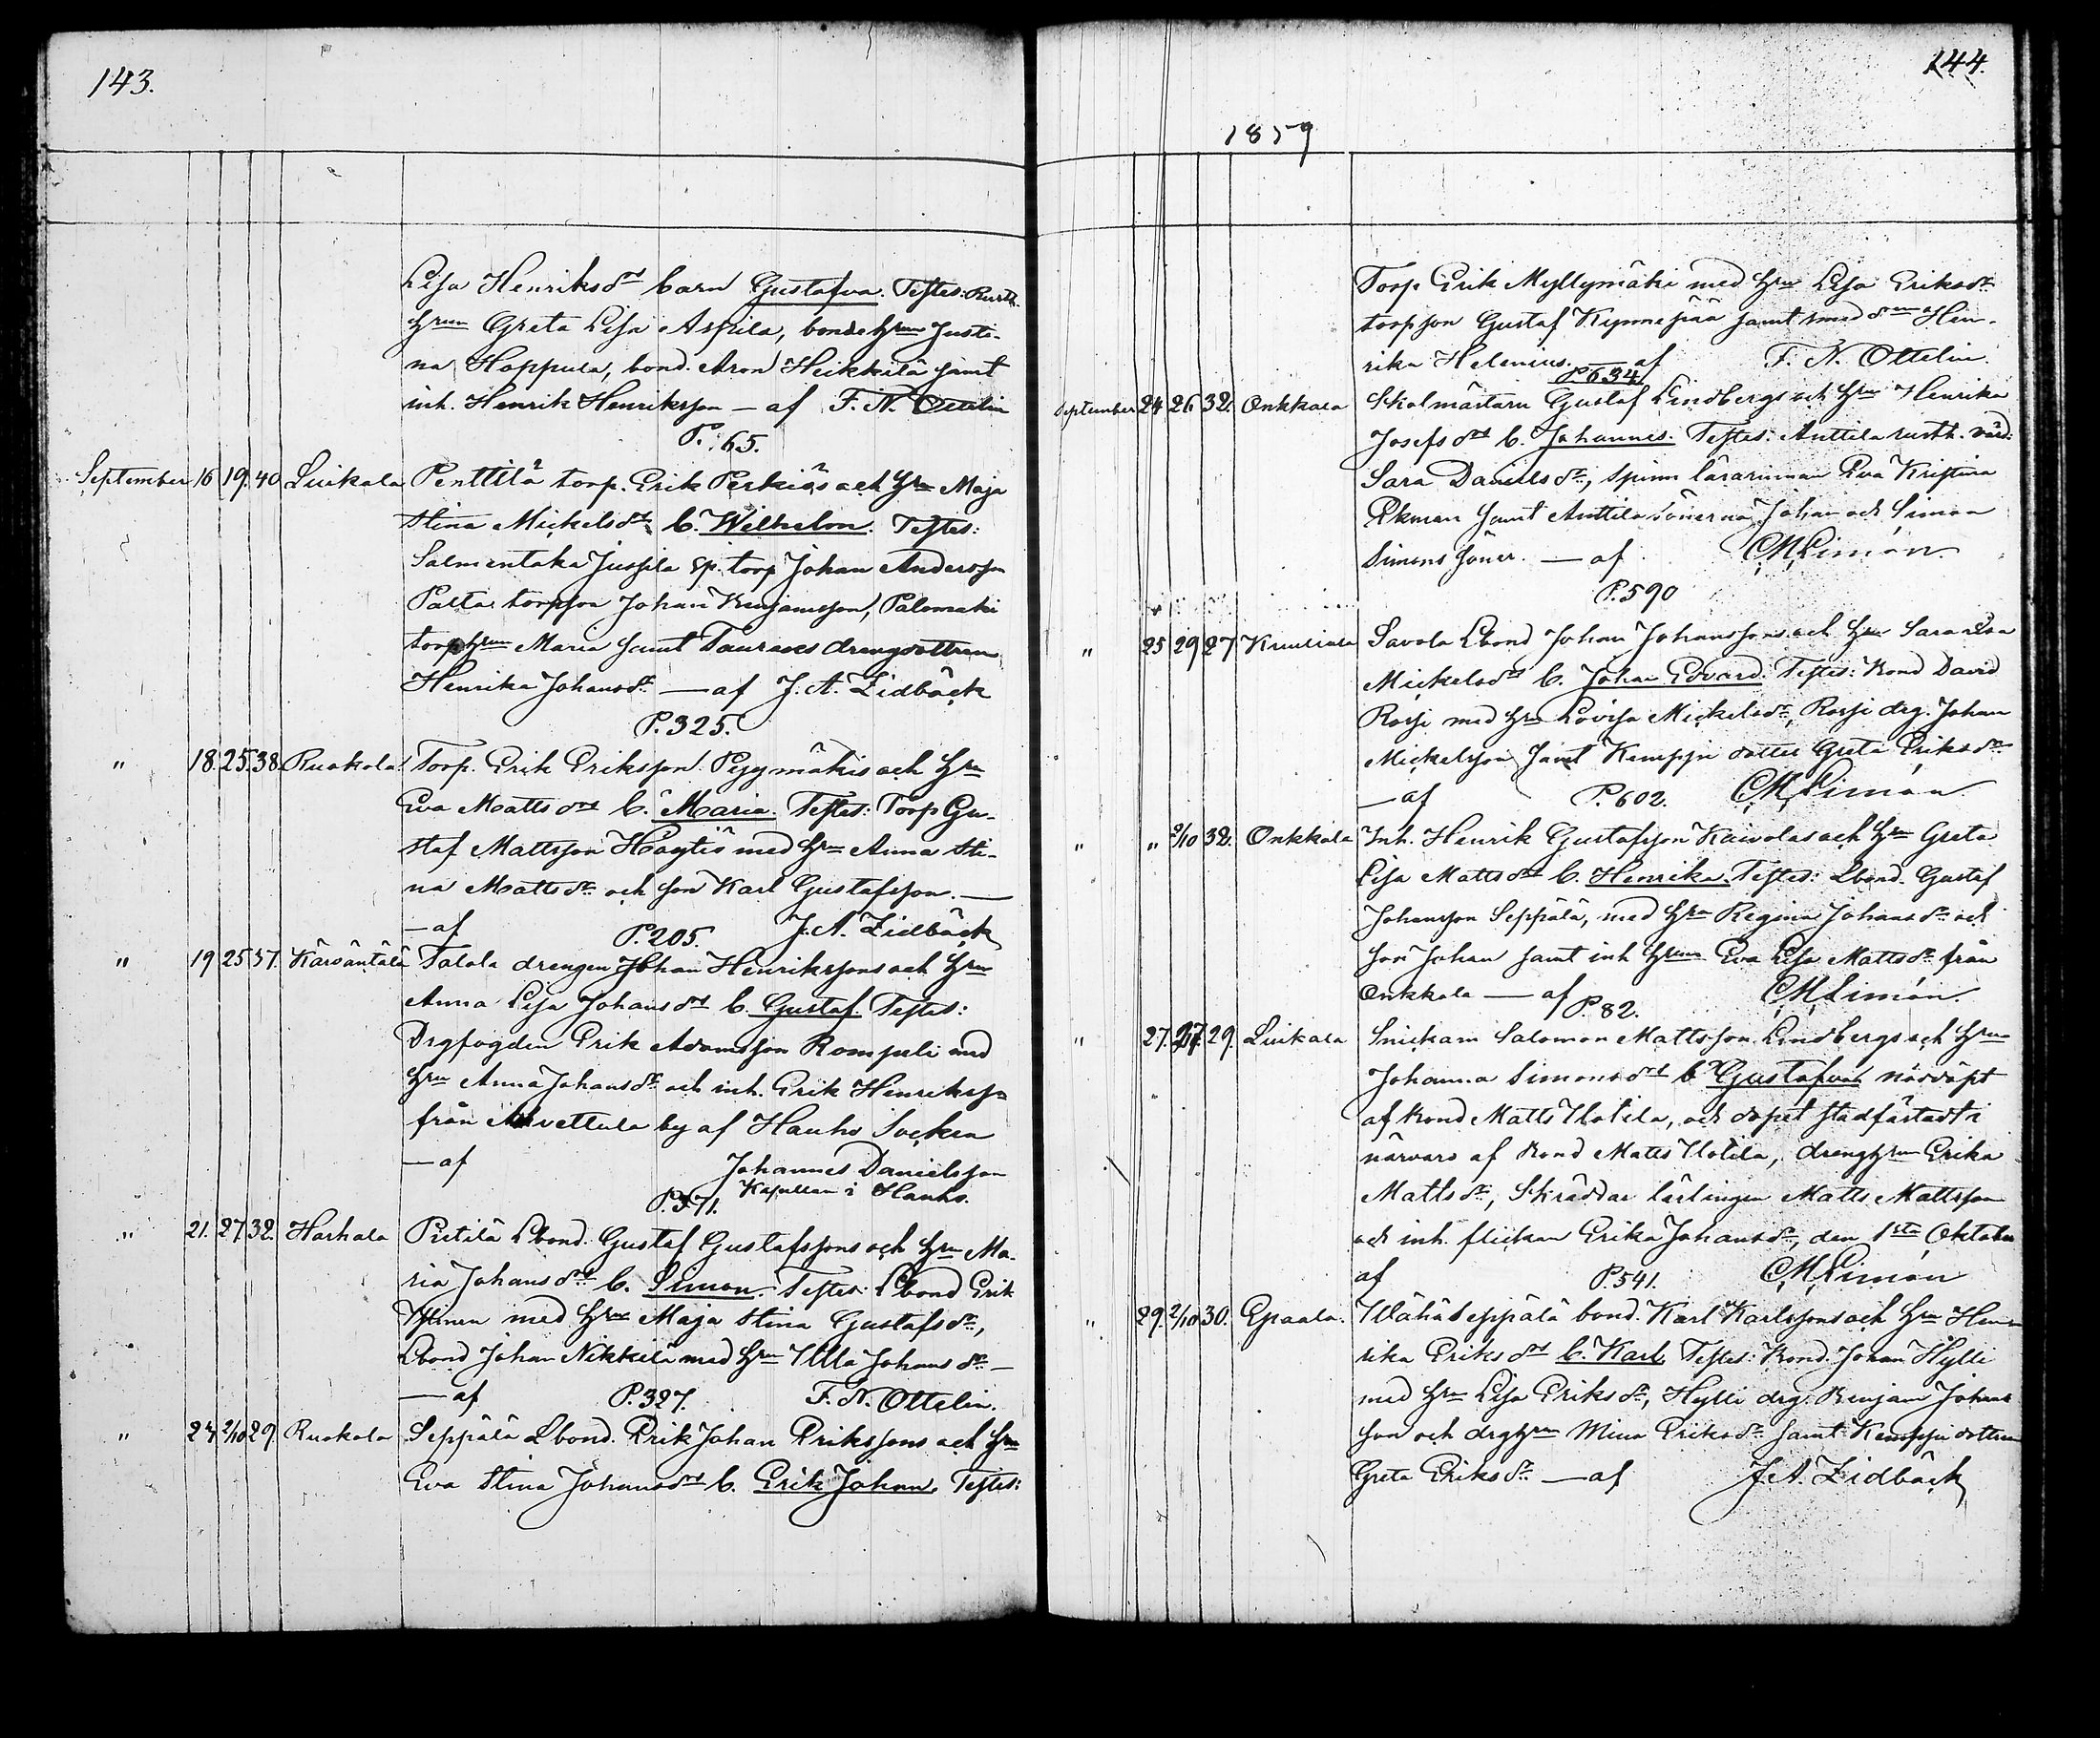 143.
Lisa Henriksdr barn Gustafva. Testes: Rusth.
hrun Greta Lisa Aspila, bonde hrun Justi-
na Hoppula, bond. Aron Heikkilä samt
inh. Henrik Henriksson — af F. N. Ottelin
P. 65.
September 16 19. 40. Luikala Penttilä torp. Erik Perkiös och hru Maja
Stina Mickelsdr b. Wilhelm. Testes:
Salmentaka Jussila sp. torp Johan Andersson
Palta torpson Johan Benjamsson, Palomäki
torp hrun Maria samt Taurens drengdottren
Henrika Johansdr — af J. A. Zidbäck
P. 325.
" 18. 25. 38. Ruokola Torp. Erik Eriksson Pyymäkis och hru
Eva Mattsdr b. Maria. Testes: Torp Gu-
staf Mattsson Häytiö med hru Anna Sti-
na Mattsdr och son Karl Gustafsson. —
— af P. 205. J. A. Zidbäck
" 19 25 37. Kärsäntälä Talola drengen Johan Henrikssons och hru
Anna Lisa Johansdr b. Gustaf. Testes:
Drgfogden Erik Adamsson Rompuli med
hru Anna Johansdr och inh. Erik Henriksson
från Alvettula by af Hauho Socken
— af Johannes Danielsson
P. 371. Kapellan i Hauho.
" 21. 27. 32. Harhala Pietilä Lbond. Gustaf Gustafssons och hru Ma-
ria Johansdr b. Simon. Testes: Lbond Erik
med hru Maja Stina Gustafsdr,
Lbond Johan Nikkilä med hru Ulla Johansdr —
— af P. 327. F. N. Ottelin.
" 24 2/10 29. Ruokola Seppälä Lbond. Erik Johan Erikssons och hru
Eva Stina Johansdr b. Erik Johan. Testes:
144.
1859
Torp. Erik Myllymäki med hru Lisa Eriksdr
torpson Gustaf Kynnepää samt smed Hen-
rika Helenius. — af F. N. Ottelin.
P. 634
September 24 26 32. Onkkala Skolmästarn Gustaf Lindbergs och hru Henrika
Josefsdr b. Johannes. Testes: Anttila rusth. värd:
Sara Danielsdr, spinn lärarinnan Eva Kristina
Ekman samt Anttila sönerna Johan och Simon
Simons söner. — af C. M. Limón
P. 590
" 25 29 27 Kuuliala Savola Lbond Johan Johanssons och hru Sara Lisa
Mickelsdr b. Johan Edvard. Testes: Bond David
Rossi med hru Lovisa Mickelsdr, Rossi drg. Johan
Mickelsson samt Kemppi dotter Greta Eriksdr
— af P. 602. C. M. Limón
" " 2/10 32. Onkkala Inh. Henrik Gustafsson Kaivolas och hru Greta
Lisa Mattsdr b. Henrika. Testes: Lbond. Gustaf
Johansson Seppälä, med hru Regina Johansdr och
son Johan samt inh hrun Eva Lisa Mattsdr från
Onkkala — af C. M. Limón.
P. 82.
" 27. 27 29. Luikala Snickarn Salomon Mattsson Lindbergs och hru
Johanna Simonsdr b. Gustafva nöddöpt
af Bond Matts Uotila, och dopet stadfästadt i
närvaro af Bond Matts Uotila, dreng hrun Erika
Mattsdr, Skräddar lärlingen Matts Mattsson
och inh. flickan Erika Johansdr, den 1sta Oktober
af P. 541. C. M. Limón
" 29. 2/10 30. Epaala. Wähä Seppälä bond. Karl Karlssons och hru Hen-
rika Eriksdr b. Karl. Testes: Bond. Johan Hylli
med hru Lisa Eriksdr, Hylli drg. Benjam Johans
son och drghrun Mina Eriksdr samt Kemppi dottren
Greta Eriksdr — af J. A. Zidbäck